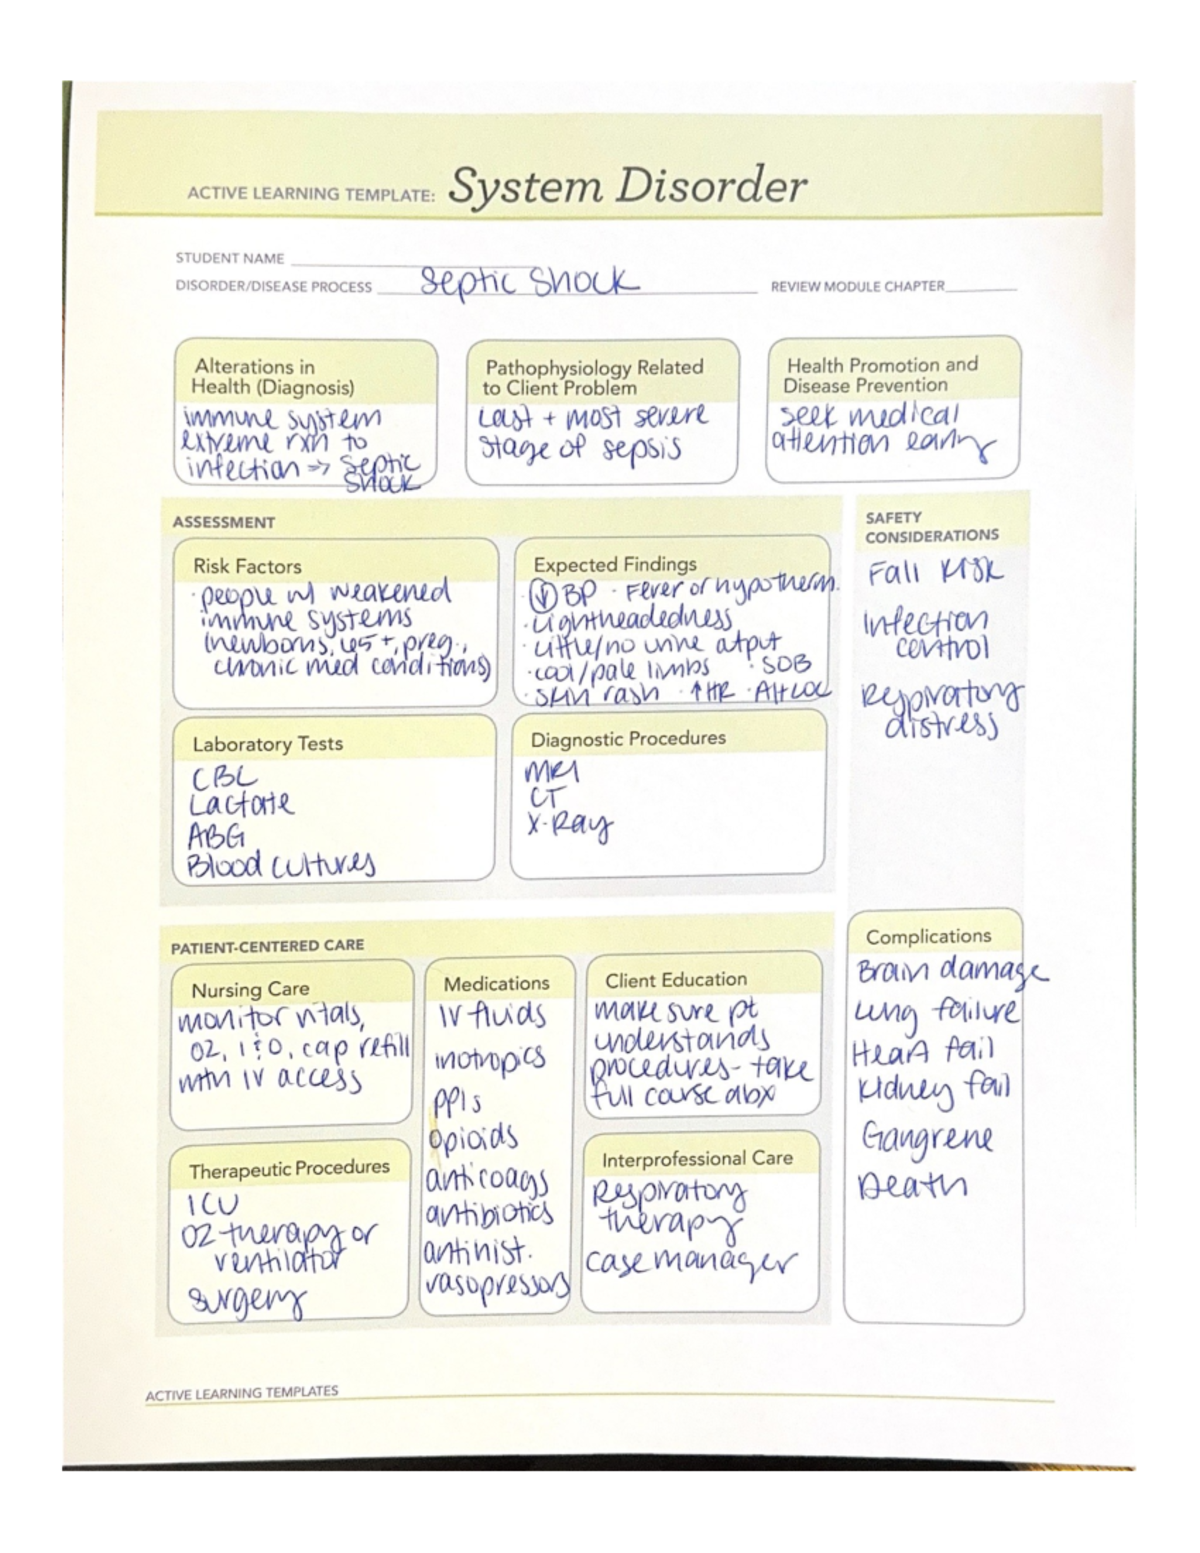 ACTIVE LEARNING TEMPLATE: System Disorder
STUDENT NAME
DISORDER/DISEASE PROCESS Septic Shock REVIEW MODULE CHAPTER
Alterations in
Health (Diagnosis)
immune system
extreme rxn to
infection => Septic
Shock
Pathophysiology Related
to Client Problem
Last + most severe
stage of sepsis
Health Promotion and
Disease Prevention
seek medical
attention early
ASSESSMENT
Risk Factors
· people w/ weakened
immune systems
(newborns, 65+, preg.,
chronic med conditions)
Expected Findings
· ↓ BP · Fever or hypotherm.
· Lightheadedness
· Little/no urine output
· cool/pale limbs · SOB
· skin rash · ↑HR · Alt LOC
Laboratory Tests
CBC
Lactate
ABG
Blood cultures
Diagnostic Procedures
MRI
CT
X-Ray
SAFETY
CONSIDERATIONS
Fall risk
Infection
control
Respiratory
distress
PATIENT-CENTERED CARE
Nursing Care
monitor vitals,
O2, I&O, cap refill
mtn IV access
Medications
IV fluids
inotropics
PPIs
opioids
anticoags
antibiotics
antihist.
vasopressors
Client Education
make sure pt
understands
procedures- take
full course abx
Therapeutic Procedures
ICU
O2 therapy or
ventilator
surgery
Interprofessional Care
Respiratory
therapy
case manager
Complications
Brain damage
Lung failure
Heart fail
Kidney fail
Gangrene
Death
ACTIVE LEARNING TEMPLATES